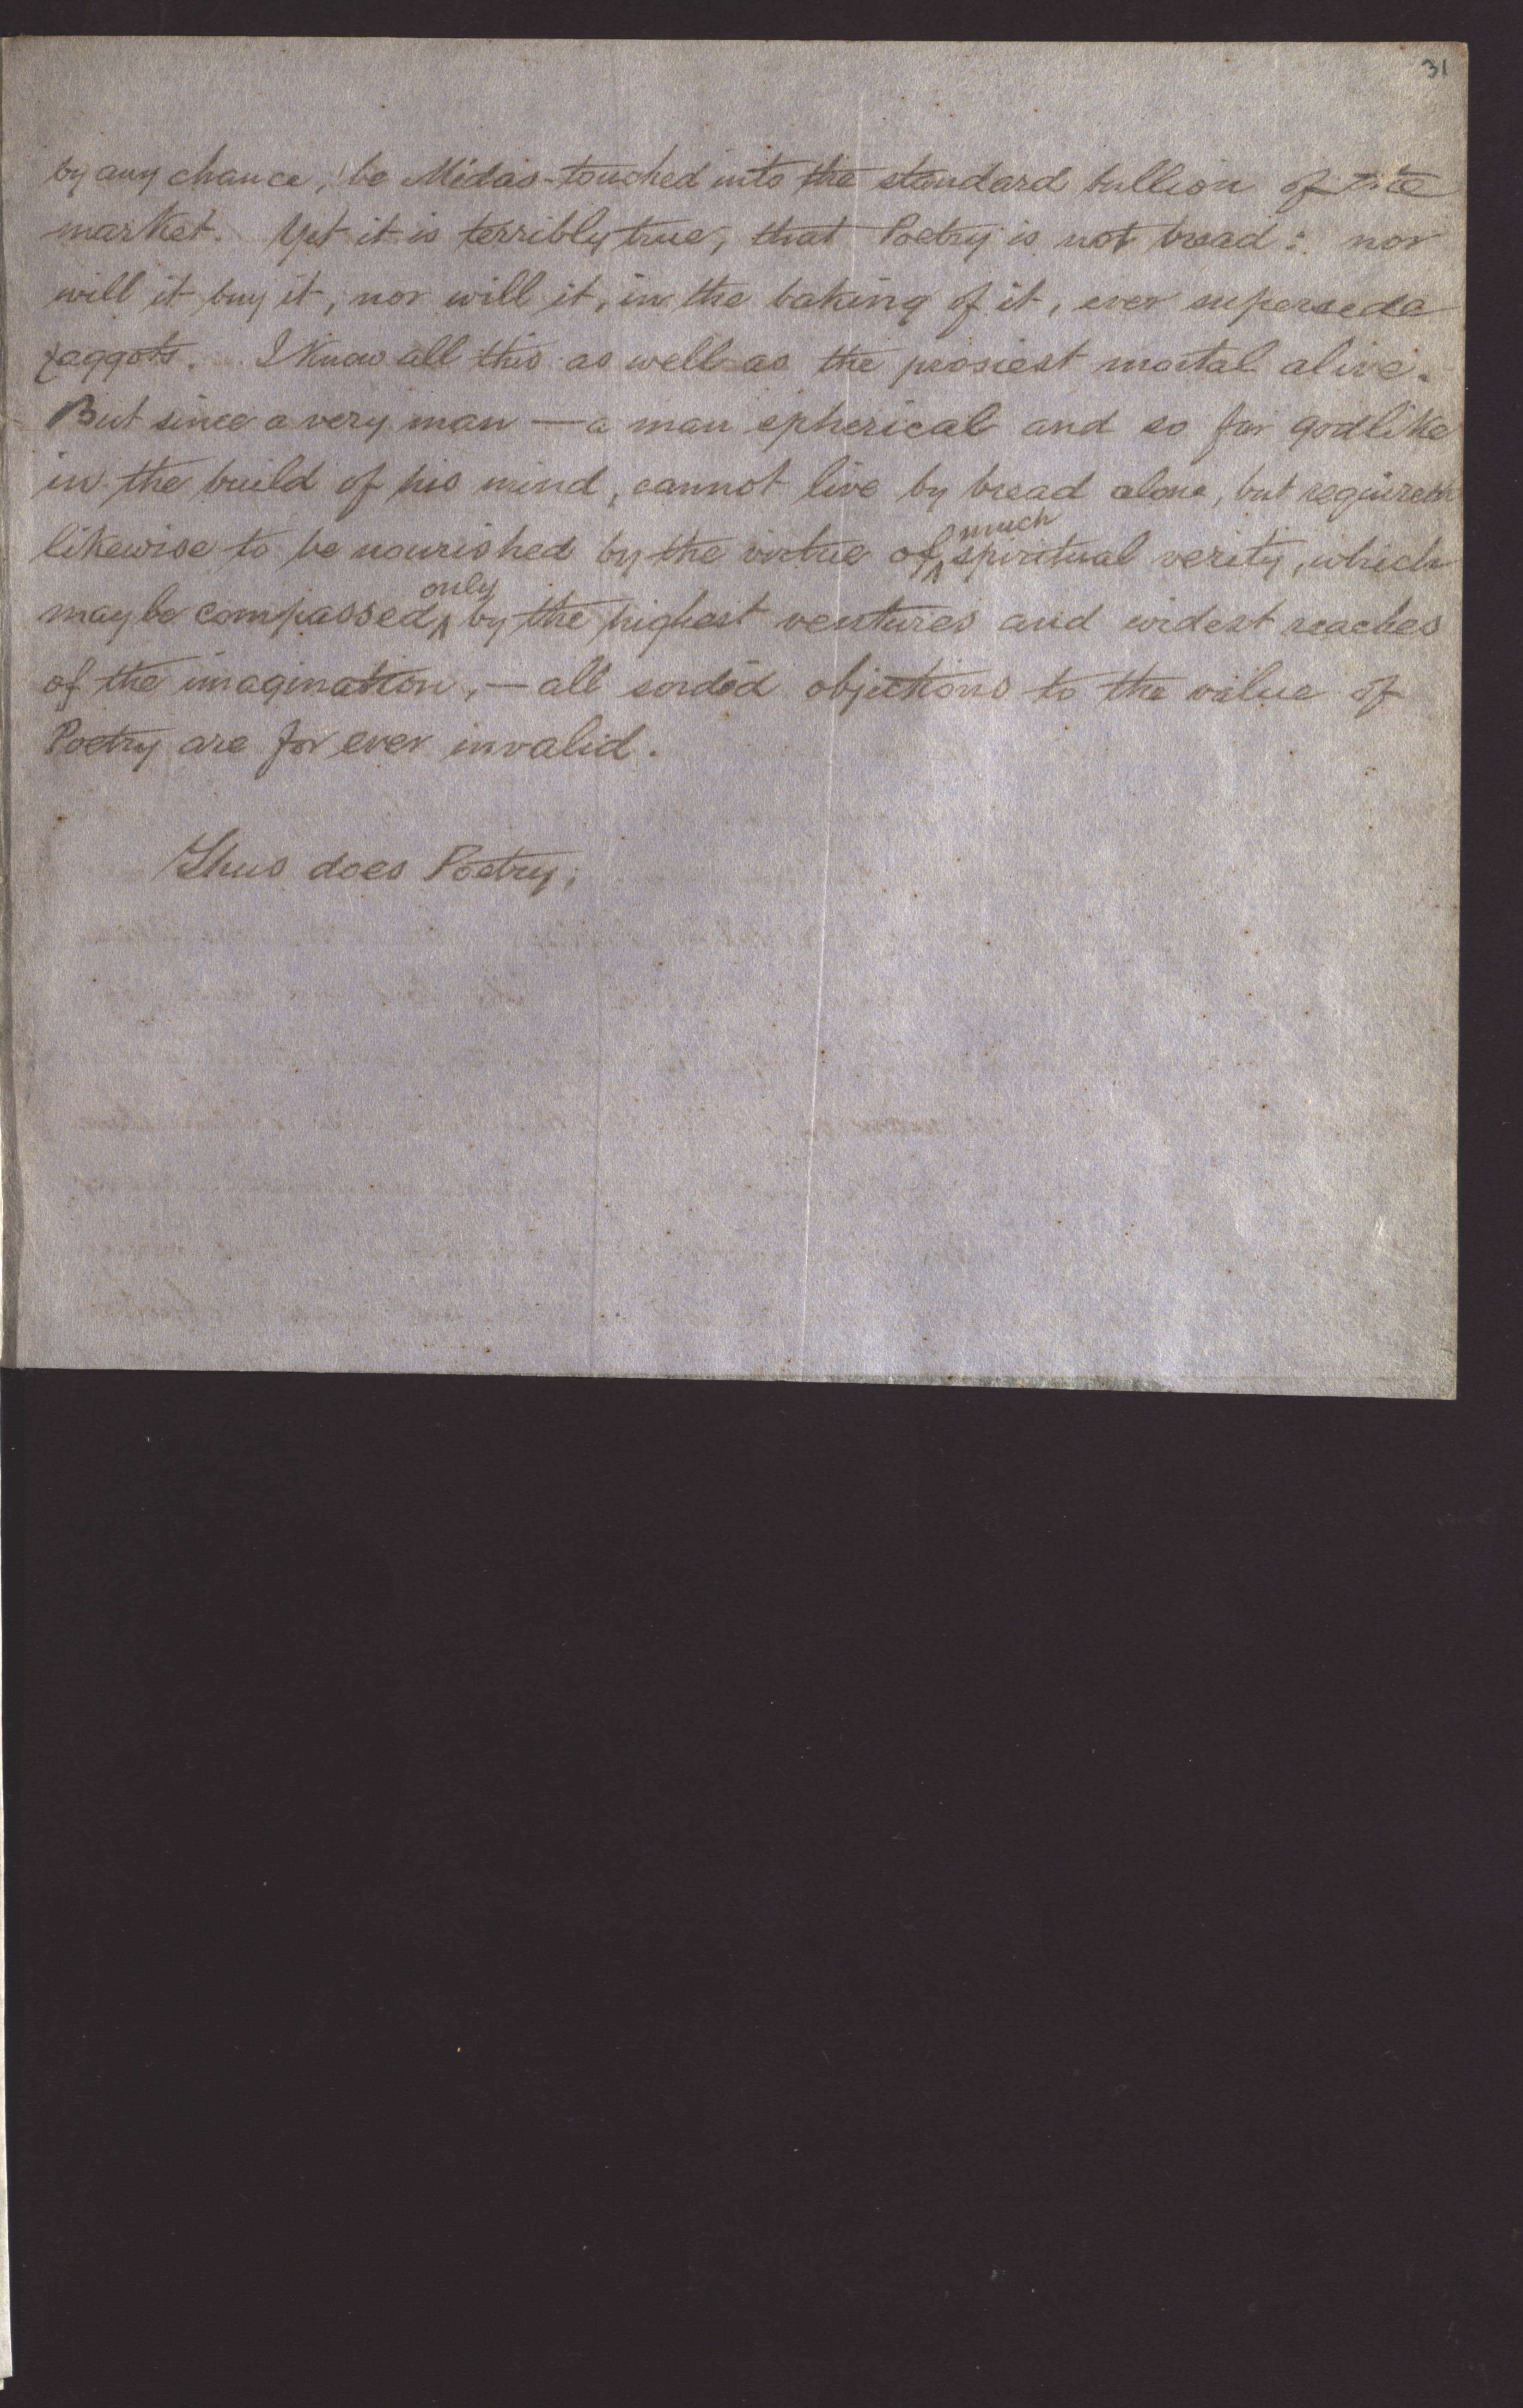 31
by any chance, be Midas-touched into the standard bullion of the
market. Yet it is terribly true, that Poetry is not bread: nor
will it buy it, nor will it, in the baking of it, ever supersede
faggots. I know all this as well as the prosiest mortal alive.
But since a very man — a man spherical and so far godlike
in the build of his mind, cannot live by bread alone, but requireth
much
likewise to be nourished by the virtue of ^ spiritual verity, which
only
may be compassed ^ by the highest ventures and widest reaches
of the imagination, — all sordid objections to the value of
Poetry are for ever invalid.
Thus does Poetry;